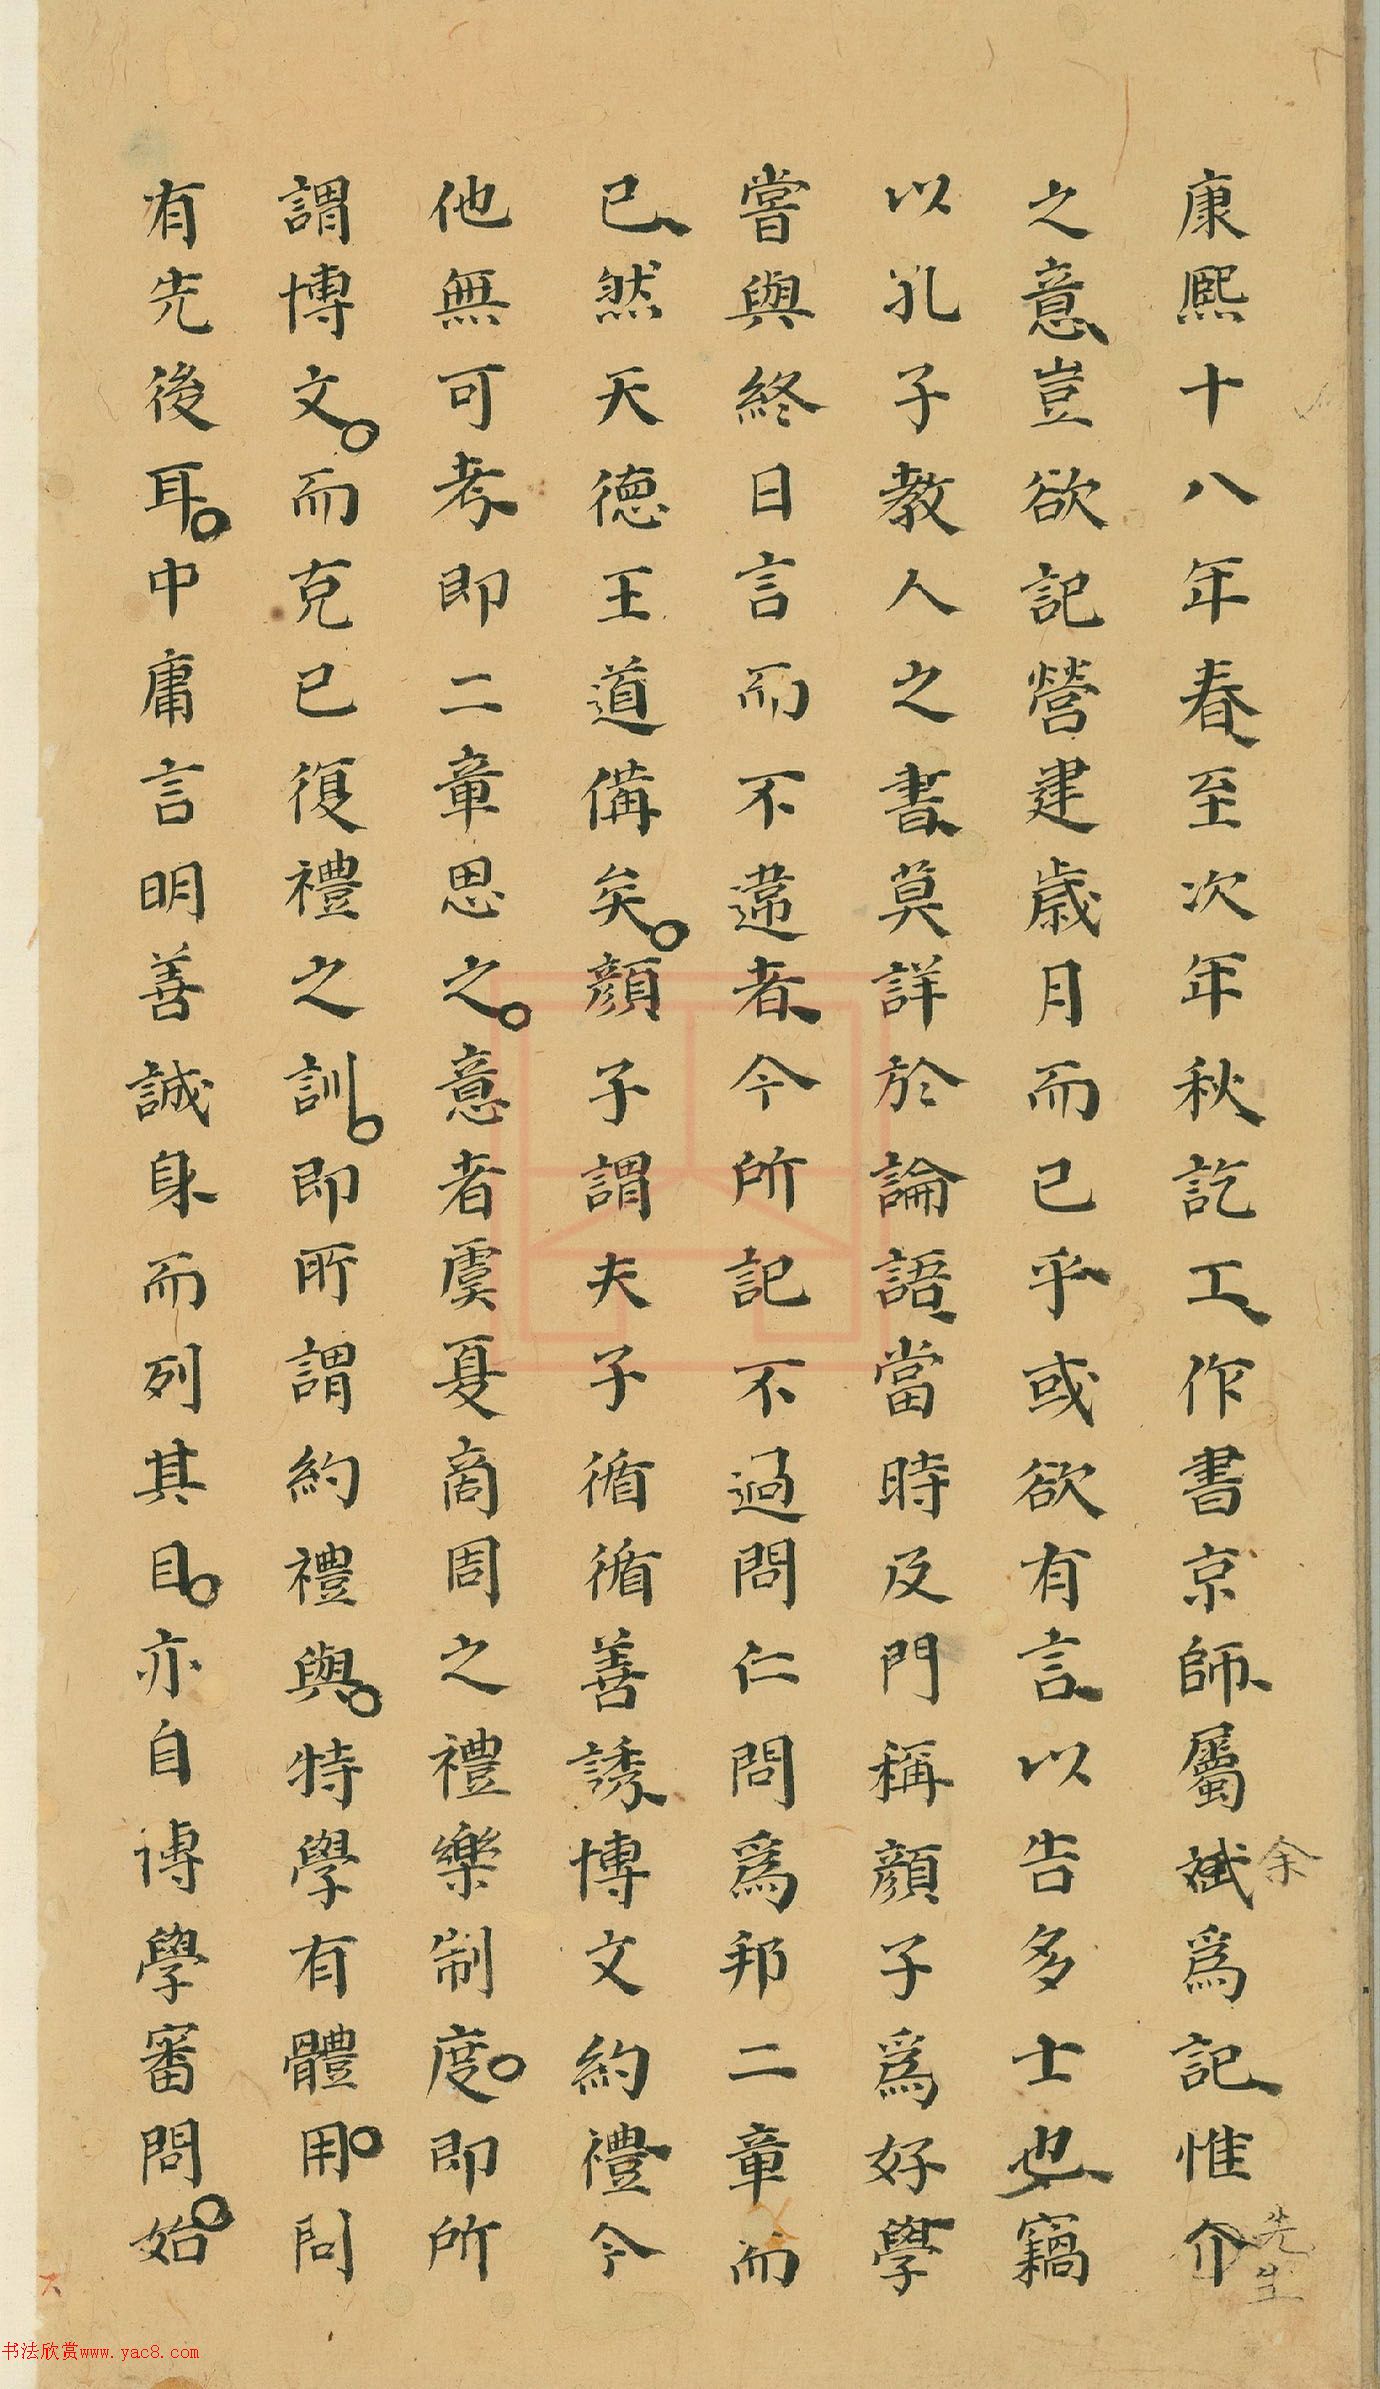 康熙十八年春至次年秋訖工作書京師屬斌爲記惟介
余
先生
之意豈欲記營建歲月而已乎或欲有言以告多士也竊
以孔子教人之書莫詳於論語當時及門稱顔子爲好學
嘗與終日言而不違者今所記不過問仁問爲邦二章而
已然天德王道備矣。顔子謂夫子循循善誘博文約禮今
他無可考即二章思之。意者虞夏商周之禮樂制度。即所
謂博文。而克已復禮之訓。即所謂約禮與。特學有體用。問
有先後耳。中庸言明善誠身而列其目。亦自博學審問。始
书法欣赏www.yac8.com